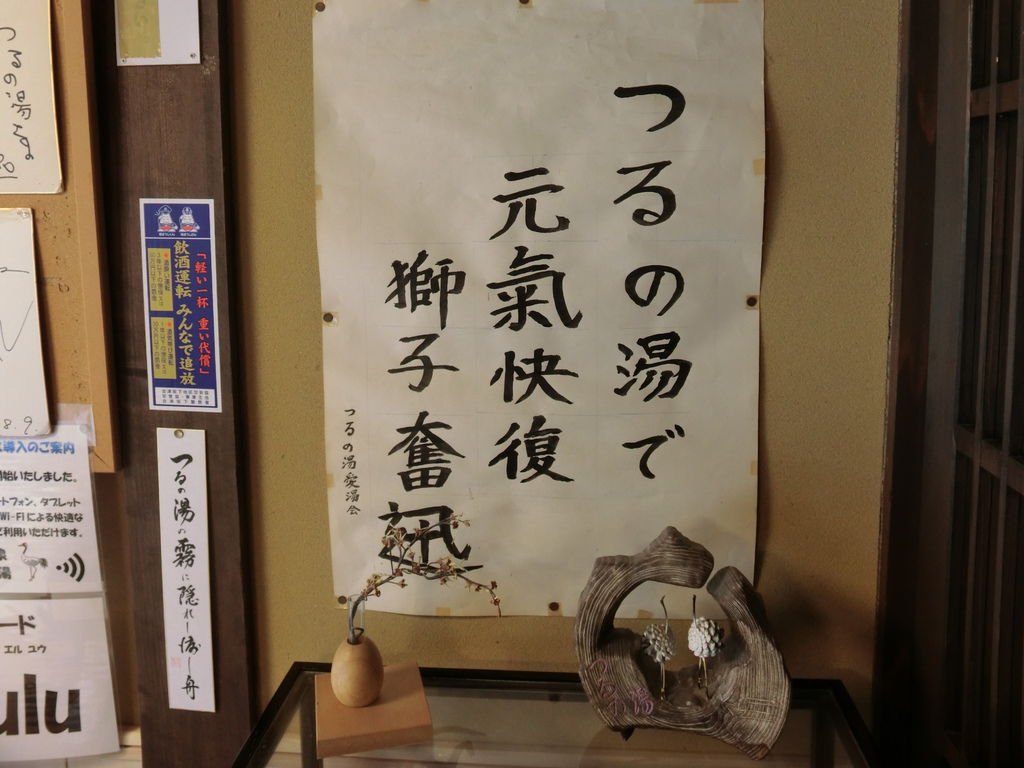 つるの湯で
元氣快復
獅子奮迅
つるの湯愛湯会
「軽い一杯 重い代償」
飲酒運転 みんなで追放
つるの湯の霧に隠れし渡し舟
つるの湯さん
8.9
導入のご案内
開始いたしました。
トフォン、タブレット
Wi-Fiによる快適な
ご利用いただけます。
湯
ード
エル ユウ
ulu
つるの湯